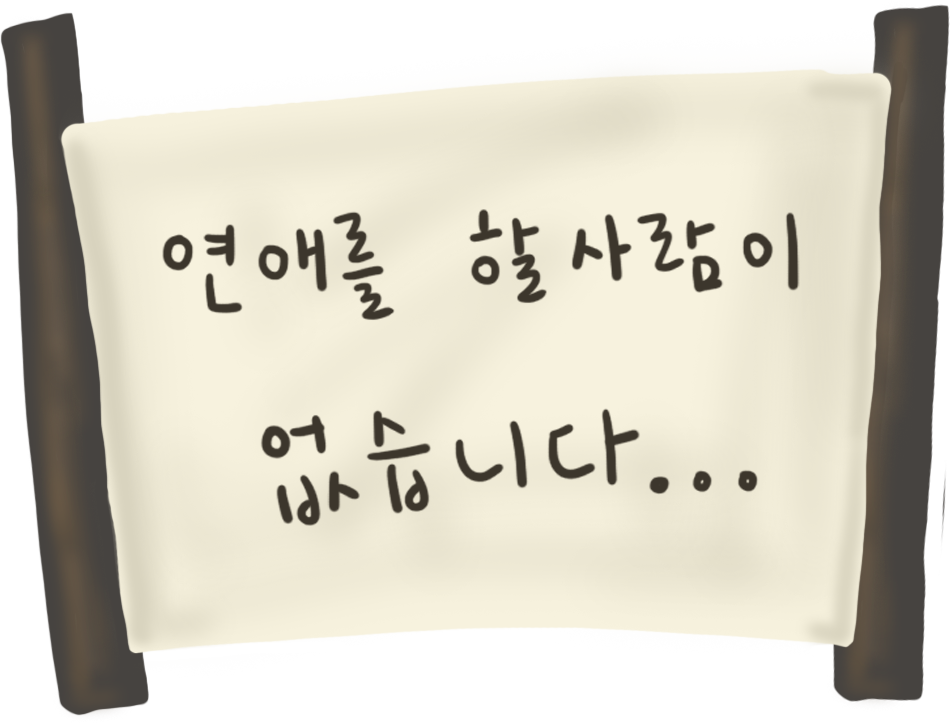 연애를 할사람이
없습니다...